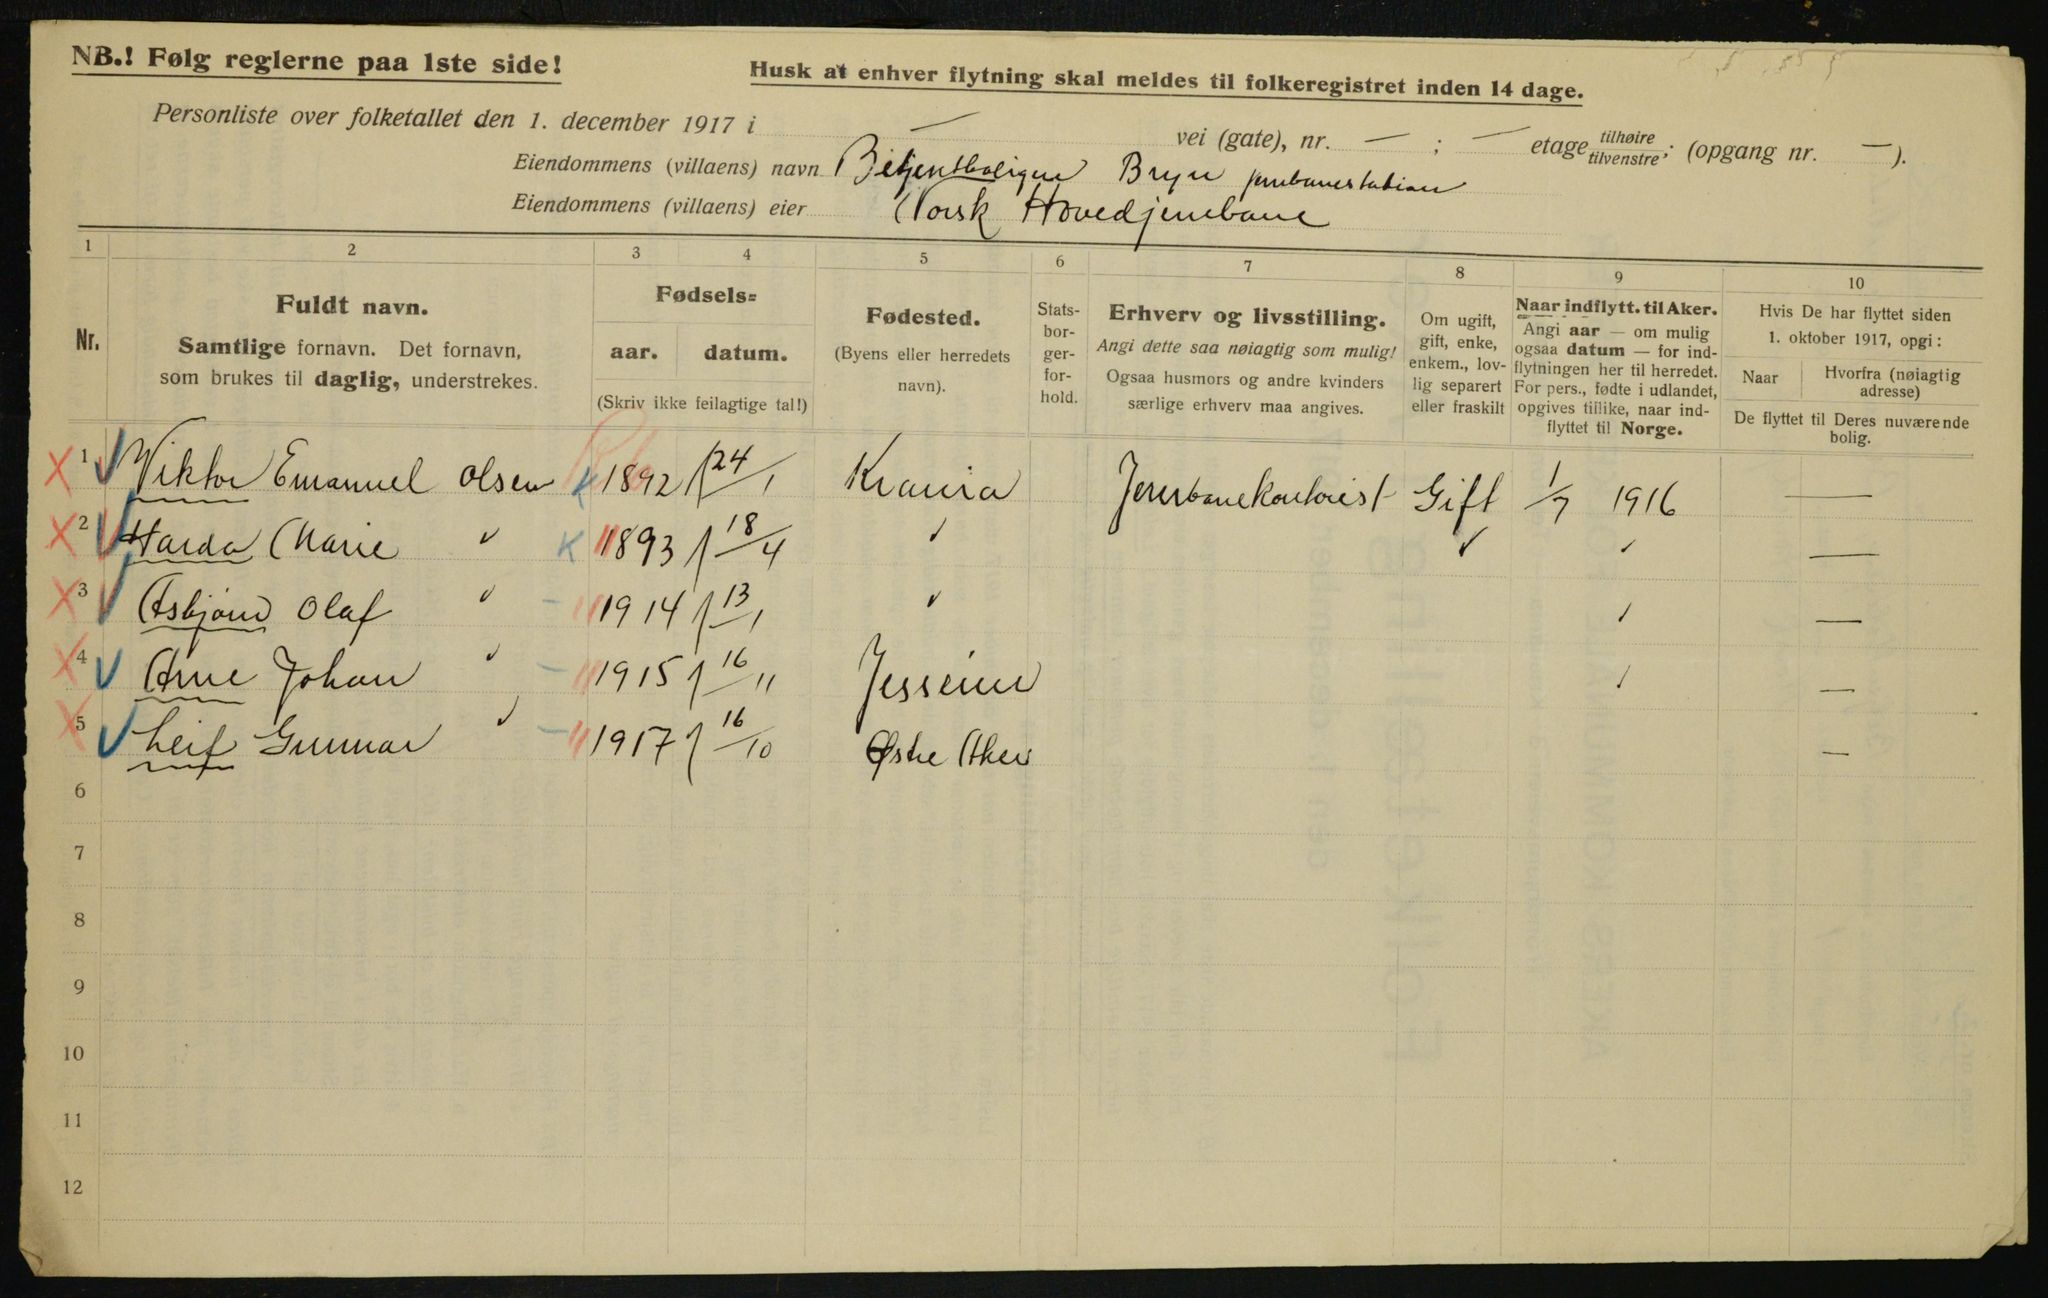 NB.! Følg reglerne paa 1ste side!
Husk at enhver flytning skal meldes til folkeregistret inden 14 dage.
Personliste over folketallet den 1. december 1917 i — vei (gate), nr. — ; — etage tilhøire/tilvenstre; (opgang nr. —).
Eiendommens (villaens) navn Betjentboligen Bryn jernbanestation
Eiendommens (villaens) eier Norsk Hovedjernbane
1 2 3 4 5 6 7 8 9 10
Nr.
Fuldt navn.
Samtlige fornavn. Det fornavn,
som brukes til daglig, understrekes.
Fødsels=
aar. datum.
(Skriv ikke feilagtige tal!)
Fødested.
(Byens eller herredets
navn).
Stats-
bor-
ger-
for-
hold.
Erhverv og livsstilling.
Angi dette saa nøiagtig som mulig!
Ogsaa husmors og andre kvinders
særlige erhverv maa angives.
Om ugift,
gift, enke,
enkem., lov-
lig separert
eller fraskilt
Naar indflytt. til Aker.
Angi aar — om mulig
ogsaa datum — for ind-
flytningen her til herredet.
For pers., fødte i udlandet,
opgives tillike, naar ind-
flyttet til Norge.
Hvis De har flyttet siden
1. oktober 1917, opgi:
Naar Hvorfra (nøiagtig
adresse)
De flyttet til Deres nuværende
bolig.
1 Viktor Emanuel Olsen K 1892 24/1 Krania Jernbanekontorist Gift 1/7 1916 —
2 Harda Marie " K 1893 18/4 " " " —
3 Asbjørn Olaf " 1914 13/1 " " —
4 Arne Johan " 1915 16/11 Jesseim " —
5 Leif Gunnar " 1917 16/10 Østre Aker —
6
7
8
9
10
11
12